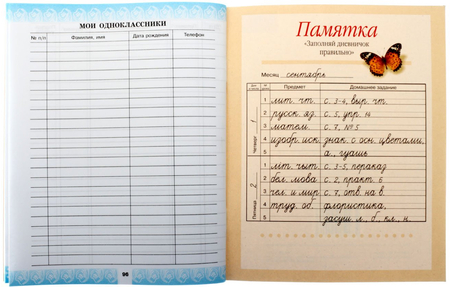 МОИ ОДНОКЛАССНИКИ
№ п/п Фамилия, имя Дата рождения Телефон
96
Памятка
«Заполняй дневничок
правильно»
Месяц сентябрь
Предмет Домашнее задание
Четверг 1
1 лит. чт. с. 3-4, выр. чт.
2 русск. яз. с. 5, упр. 14
3 матем. с. 7, № 5
4 изобр. иск. знак. с осн. цветами,
5 а., гуашь
Пятница 2
1 літ. чыт. с. 3-5, пераказ
2 бел. мова с. 2, практ. 6
3 чел. и мир с. 7, отв. на в.
4 труд. об. флористика,
5 засуш. л., б., кл., н.